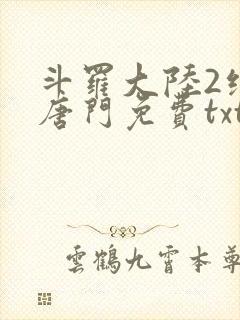 斗羅大陸2
唐門免費txt
雲鶴九霄本尊